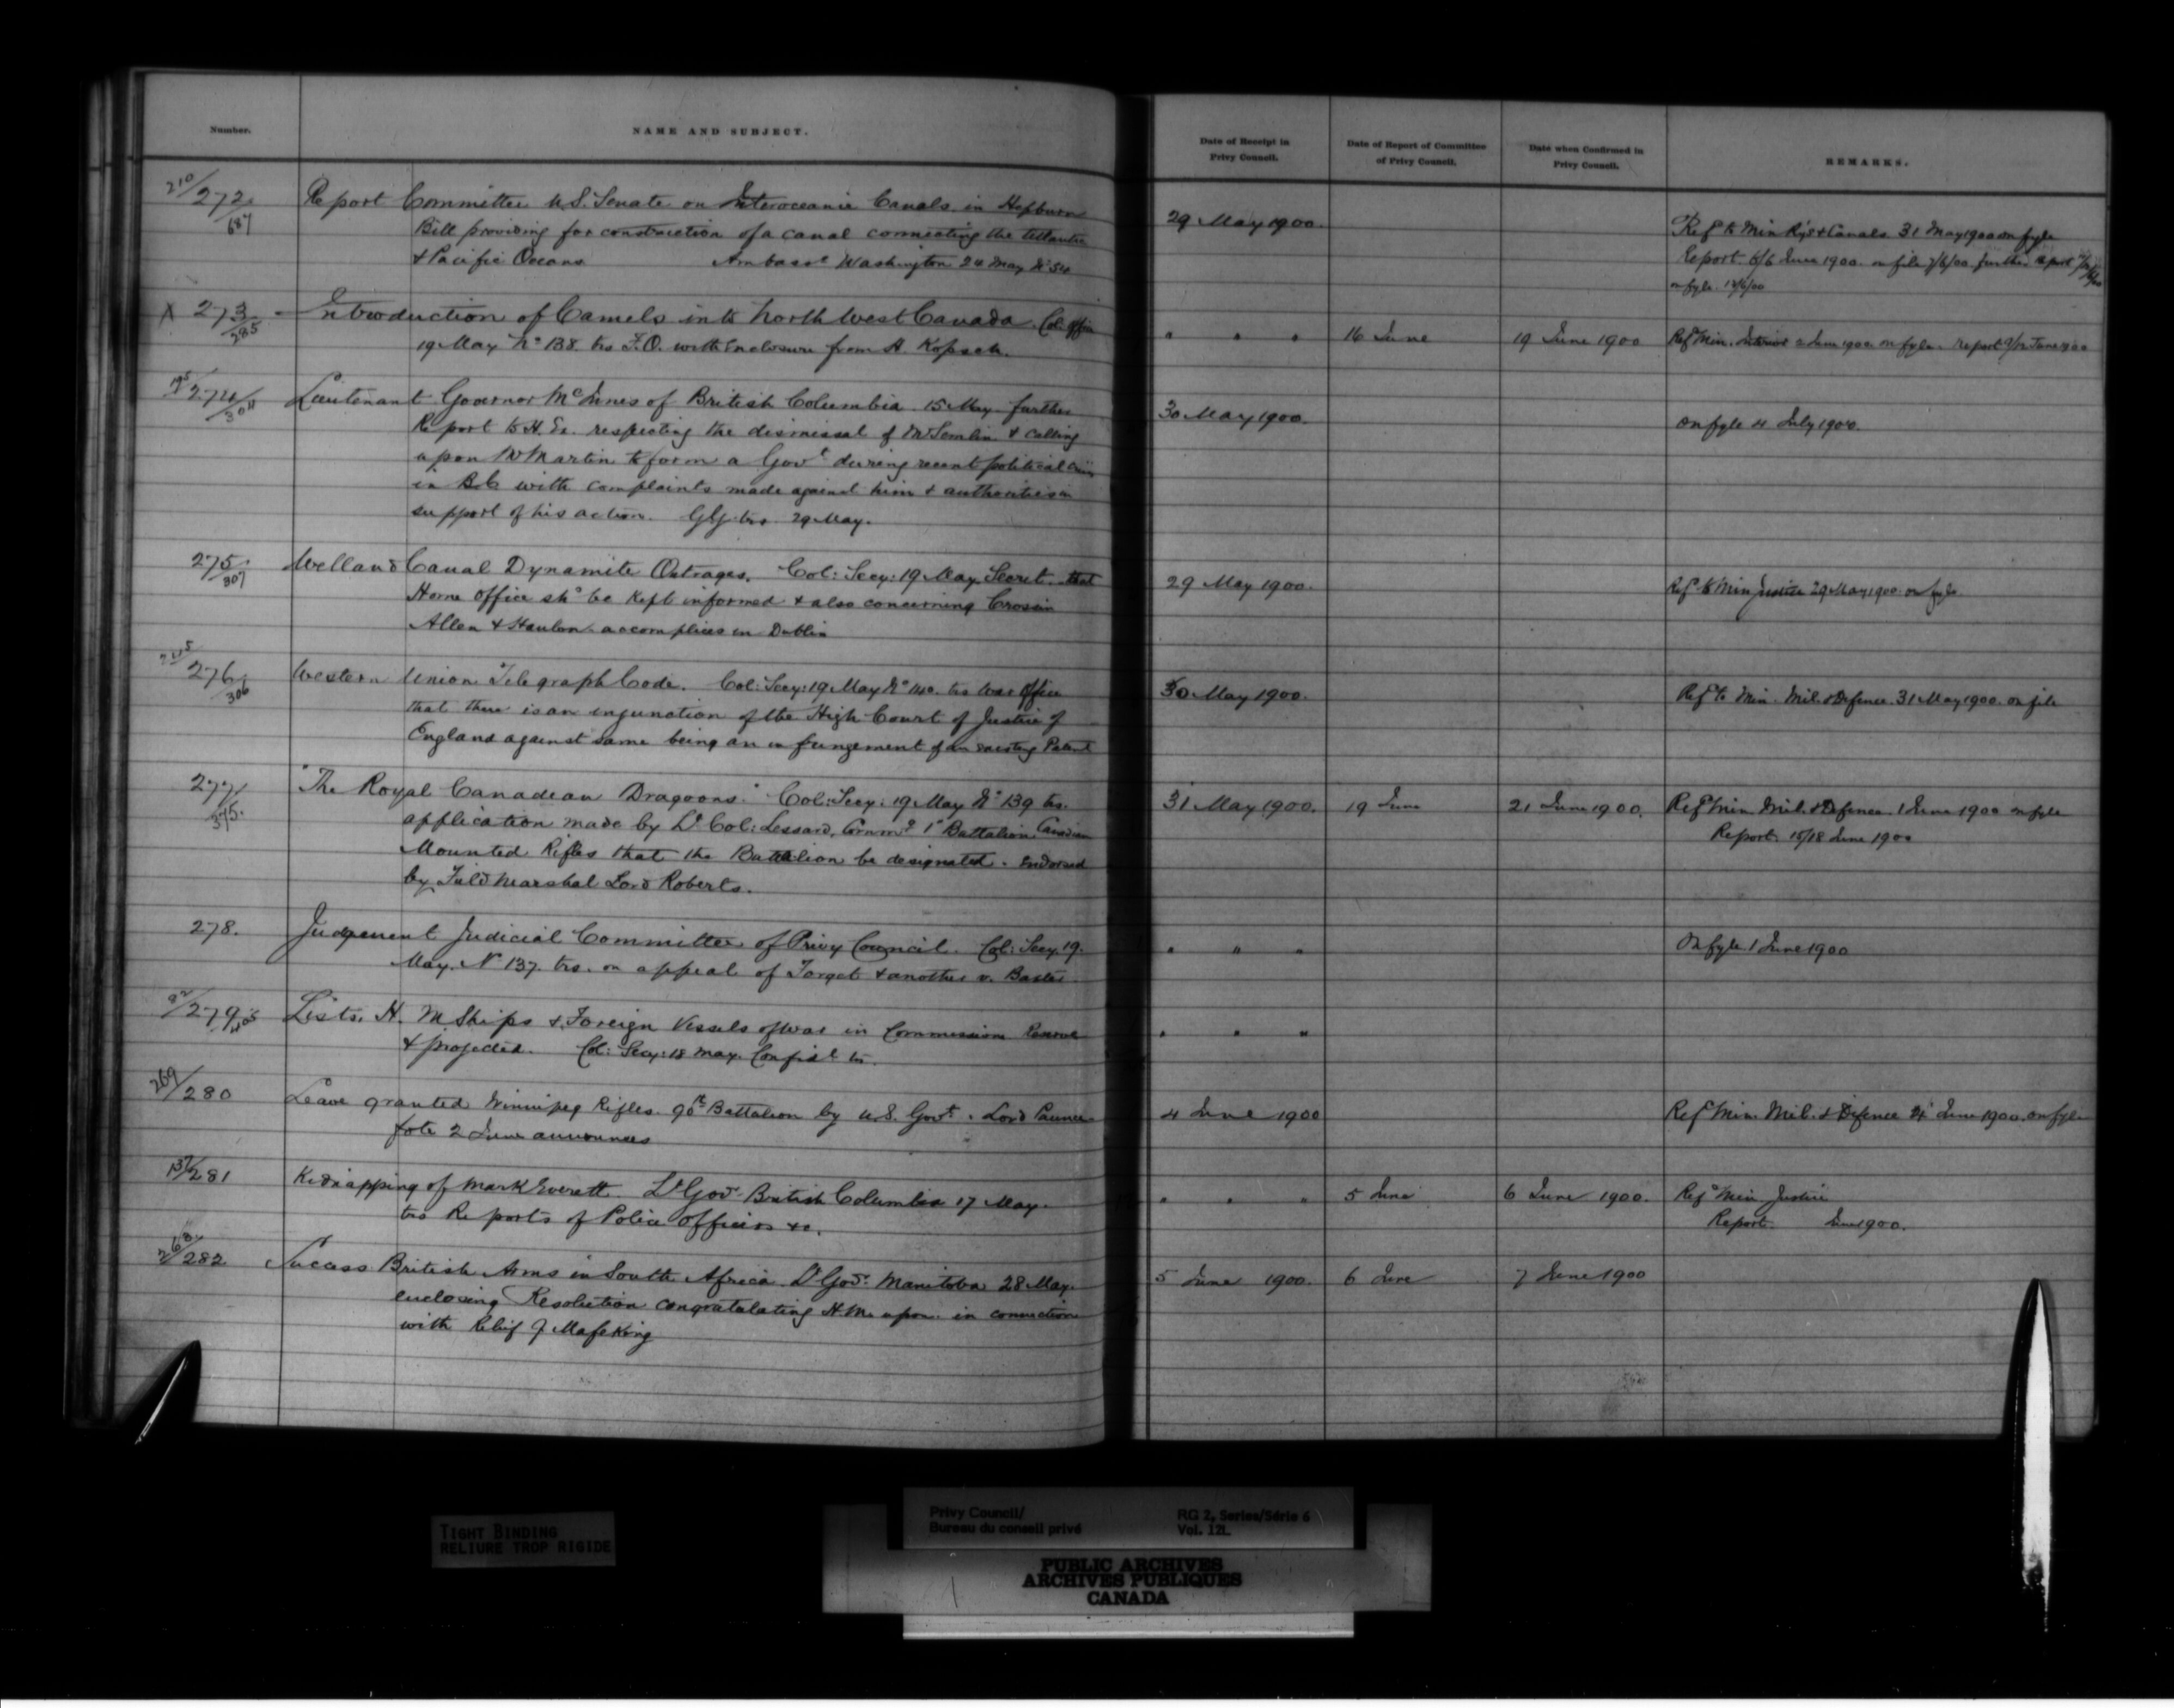 Number.
NAME AND SUBJECT.
Date of Receipt in
Privy Council.
Date of Report of Committee
of Privy Council.
Date when Confirmed in
Privy Council.
REMARKS.
210/272/687
Report Committee U.S. Senate on Interoceanic Canals in Hepburn
Bill providing for construction of a canal connecting the Atlantic
& Pacific Oceans Ambassr Washington 24 May No 54
29 May 1900.
Refd to Min Rys & Canals 31 May 1900 on fyle
Report 6/6 June 1900. on file 7/6/00 further Report
on fyle 12/6/00
X 273/285
Introduction of Camels into North West Canada. Col: Office
19 May No 138. trs F.O. with Enclosure from H. Kopsch.
" " "
16 June
19 June 1900
Refd Min. Interior 2 June 1900 on fyle. report 9/12 June 1900
195/274/304
Lieutenant Governor McInnes of British Columbia 15 May further
Report to H. Ex. respecting the dismissal of Mr Semlin & calling
upon Mr Martin to form a Govt during recent political crisis
in B.C. with complaints made against him & authorities in
support of his action. trs. 29 May.
30 May 1900.
on fyle 4 July 1900.
275/307
Welland Canal Dynamite Outrages. Col: Secy: 19 May Secret. that
Home Office shd be kept informed & also concerning
Allen & Hanlon accomplices in Dublin
29 May 1900.
Refd to Min Justice 29 May 1900 on fyle
245/276/306
Western Union Telegraph Code. Col: Secy: 19 May No 140. trs War Office
that there is an injunction of the High Court of Justice of
England against same being an infringement of an existing Patent
30 May 1900.
Refd to Min. Mil. & Defence 31 May 1900. on file
277/375.
"The Royal Canadian Dragoons." Col: Secy: 19 May No 139 trs.
application made by Lt Col: Lessard, Commdg 1st Battalion Canadian
Mounted Rifles that the Battalion be designated. Endorsed
by Field Marshal Lord Roberts.
31 May 1900.
19 June
21 June 1900.
Refd Min Mil. & Defence 1 June 1900 on fyle
Report 15/18 June 1900
278.
Judgement Judicial Committee of Privy Council. Col: Secy. 19.
May. No 137. trs. on appeal of Forget & another v. Baxter
" " "
On fyle 1 June 1900
92/279
Lists, H. M. Ships & Foreign Vessels of War in Commission Reserve
& projected. Col: Secy: 18 May. Confidl trs.
" " "
269/280
Leave granted Winnipeg Rifles 90th Battalion by U.S. Govt. Lord Paunce-
fote 2 June announces
4 June 1900
Refd Min. Mil. & Defence 4 June 1900. on fyle
137/281
Kidnapping of Mark Everett. Lt Govr British Columbia 17 May.
trs Reports of Police Officers &c.
" " "
5 June
6 June 1900.
Refd Min Justice
Report. June 1900.
268/282
Success British Arms in South Africa. Lt Govr: Manitoba 28 May.
enclosing Resolution congratulating H.M. upon in connection
with Relief of Mafeking
5 June 1900.
6 June
7 June 1900
TIGHT BINDING
RELIURE TROP RIGIDE
Privy Council/
Bureau du conseil privé
RG 2, Series/Série 6
Vol. 121.
PUBLIC ARCHIVES
ARCHIVES PUBLIQUES
CANADA